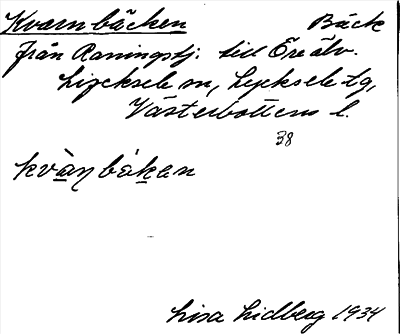 Kvarnbäcken Bäck
från Raningstj. till Öreälv.
Lycksele sn, Lycksele lg,
Västerbottens l.
38
kvàṇbäkan
Lisa Lidberg 1934